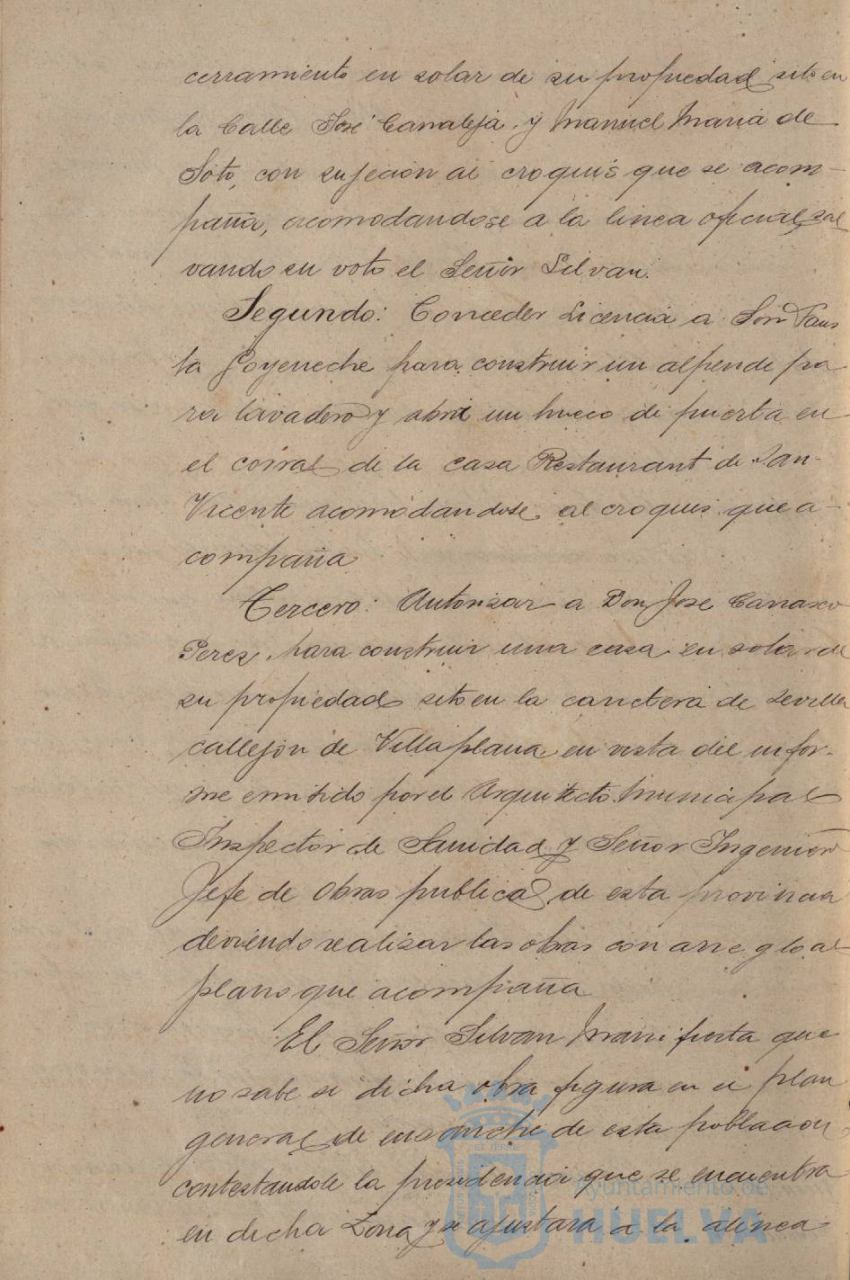 cerramiento en solar de su propiedad, sito en
la Calle José Canaleja y Manuel Maria de
Soto, con sujecion al croquis que se acom-
paña, acomodandose a la linea oficial, sal
vando su voto el Señor Silvan.
Segundo: Conceder Licencia a Don Faus
to Goyeneche para construir un alpende pa
ra lavadero y abrir un hueco de puerta en
el corral de la casa Restaurant de San-
Vicente acomodandose al croquis que a-
compaña
Tercero: Autorizar a Don Jose Carrasco
Perez, para construir una casa en solar de
su propiedad sito en la carretera de Sevilla
callejon de Villaplana en vista del infor-
me emitido por el Arquitecto Municipal
Inspector de Sanidad y Señor Ingeniero
Jefe de Obras publicas de esta provincia
deviendo realizar las obras con arreglo al
plano que acompaña
El Señor Silvan manifiesta que
no sabe si dicha obra figura en el plan
general de ensanche de esta poblacion
contestandole la presidencia que se encuentra
en dicha Zona y se ajustara a la alinea
Ayuntamiento de
HUELVA